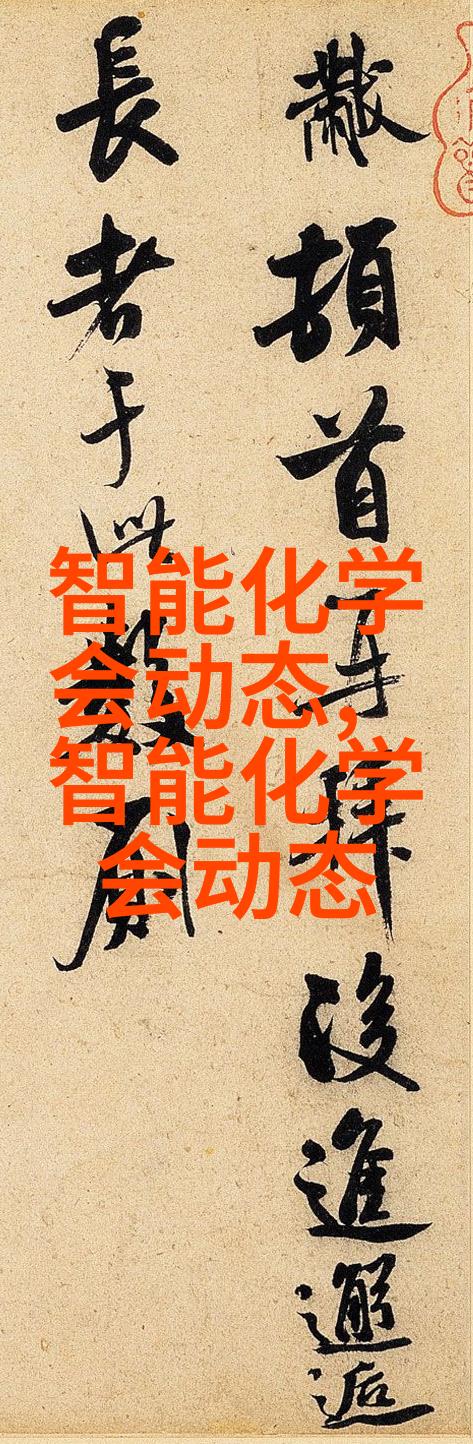 黻頓首再拜後進邂逅
長者于此數
智能化学
会动态,
智能化学
会动态